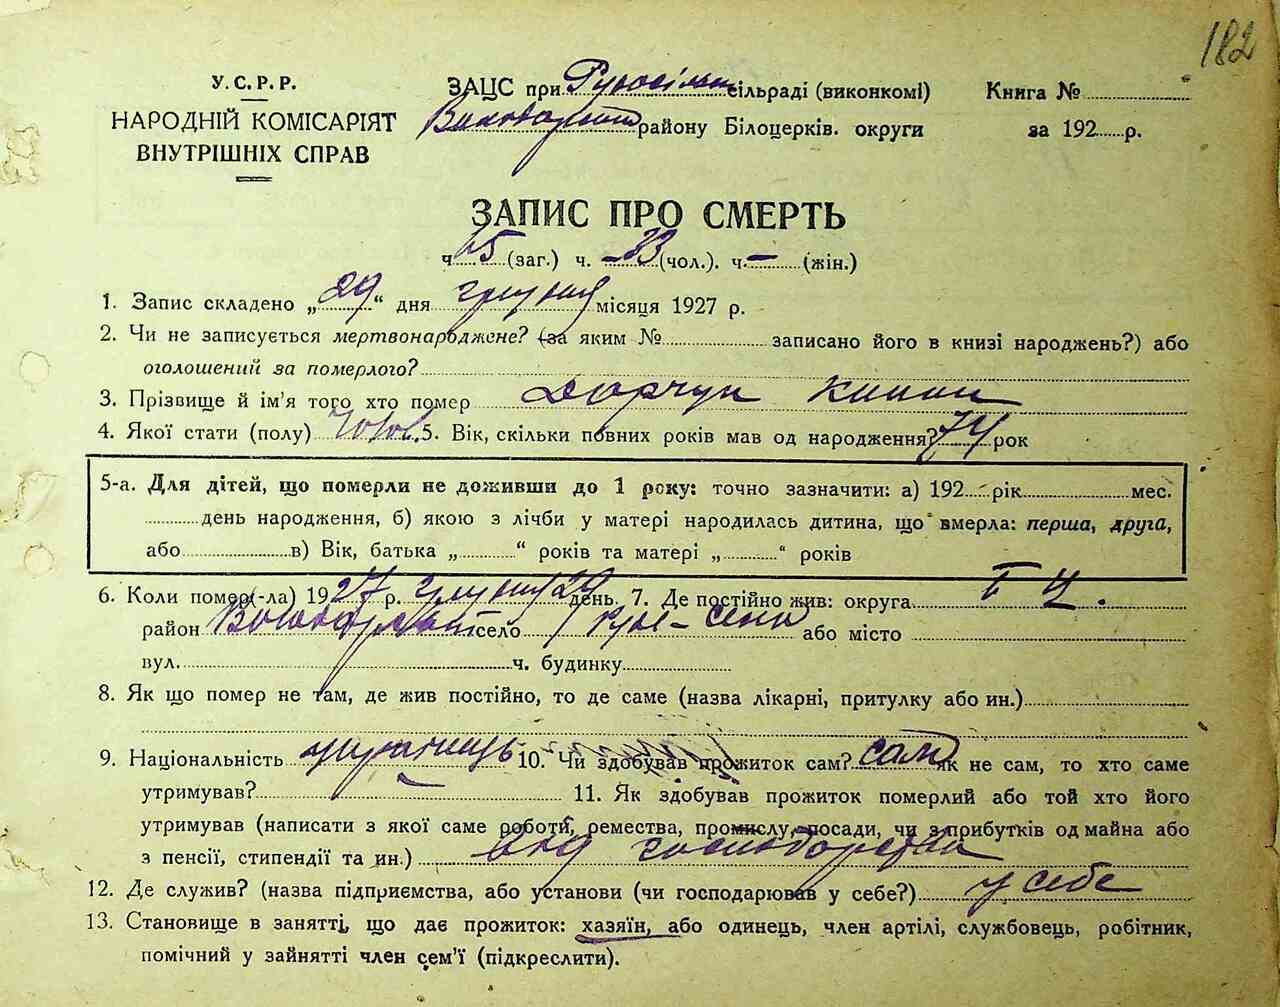 182
У.С.Р.Р.
НАРОДНІЙ КОМІСАРІЯТ
ВНУТРІШНІХ СПРАВ
ЗАЦС при сільраді (виконкомі)
району Білоцерків. округи
Книга №
за 192 р.
ЗАПИС ПРО СМЕРТЬ
ч. (заг.) ч. 33 (чол.). ч. – (жін.)
1. Запис складено „29“ дня грудня місяця 1927 р.
2. Чи не записується мертвонароджене? (за яким № записано його в книзі народжень?) або
оголошений за померлого?
3. Прізвище й ім'я того хто помер
4. Якої стати (полу) чолов. 5. Вік, скільки повних років мав од народження? 74 рок
5-а. Для дітей, що померли не доживши до 1 року: точно зазначити: а) 192 рік мес.
день народження, б) якою з лічби у матері народилась дитина, що вмерла: перша, друга,
або в) Вік, батька „ “ років та матері „ “ років
6. Коли помер(-ла) 1927 р. грудня 29 день. 7. Де постійно жив: округа
район село або місто
вул. ч. будинку
8. Як що помер не там, де жив постійно, то де саме (назва лікарні, притулку або ин.)
9. Національність українець 10. Чи здобував прожиток сам? сам як не сам, то хто саме
утримував? – 11. Як здобував прожиток померлий або той хто його
утримував (написати з якої саме роботи, ремества, промислу, посади, чи з прибутків од майна або
з пенсії, стипендії та ин.) від господарства
12. Де служив? (назва підприємства, або установи (чи господарював у себе?) у себе
13. Становище в занятті, що дає прожиток: хазяїн, або одинець, член артілі, службовець, робітник,
помічний у зайнятті член сем'ї (підкреслити).